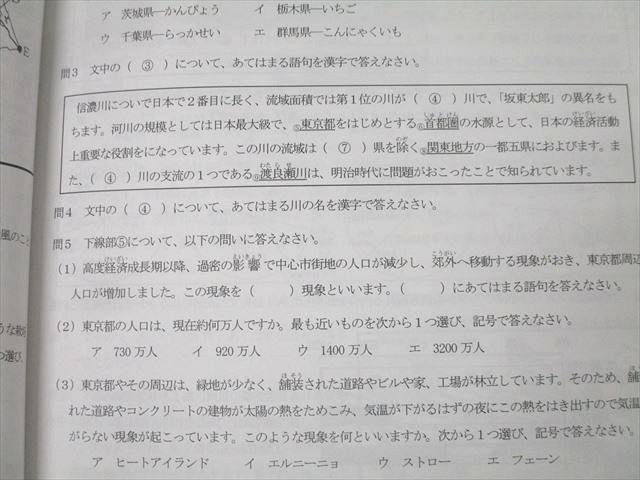 ア 茨城県―かんぴょう イ 栃木県―いちご
ウ 千葉県―らっかせい エ 群馬県―こんにゃくいも
問3 文中の（ ③ ）について、あてはまる語句を漢字で答えなさい。
信濃川についで日本で2番目に長く、流域面積では第1位の川が（ ④ ）川で、「坂東太郎」の異名をも
ちます。河川の規模としては日本最大級で、⑤東京都をはじめとする⑥首都圏の水源として、日本の経済活動
上重要な役割をになっています。この川の流域は（ ⑦ ）県を除く⑧関東地方の一都五県におよびます。ま
た、（ ④ ）川の支流の1つである⑨渡良瀬川は、明治時代に問題がおこったことで知られています。
問4 文中の（ ④ ）について、あてはまる川の名を漢字で答えなさい。
問5 下線部⑤について、以下の問いに答えなさい。
(1) 高度経済成長期以降、過密の影響で中心市街地の人口が減少し、郊外へ移動する現象がおき、東京都周辺
人口が増加しました。この現象を（ ）現象といいます。（ ）にあてはまる語句を答えなさい。
(2) 東京都の人口は、現在約何万人ですか。最も近いものを次から1つ選び、記号で答えなさい。
ア 730万人 イ 920万人 ウ 1400万人 エ 3200万人
(3) 東京都やその周辺は、緑地が少なく、舗装された道路やビルや家、工場が林立しています。そのため、舗
れた道路やコンクリートの建物が太陽の熱をためこみ、気温が下がるはずの夜にこの熱をはき出すので気温
がらない現象が起こっています。このような現象を何といいますか。次から1つ選び、記号で答えなさい。
ア ヒートアイランド イ エルニーニョ ウ ストロー エ フェーン
E
風のこと
つ選び、